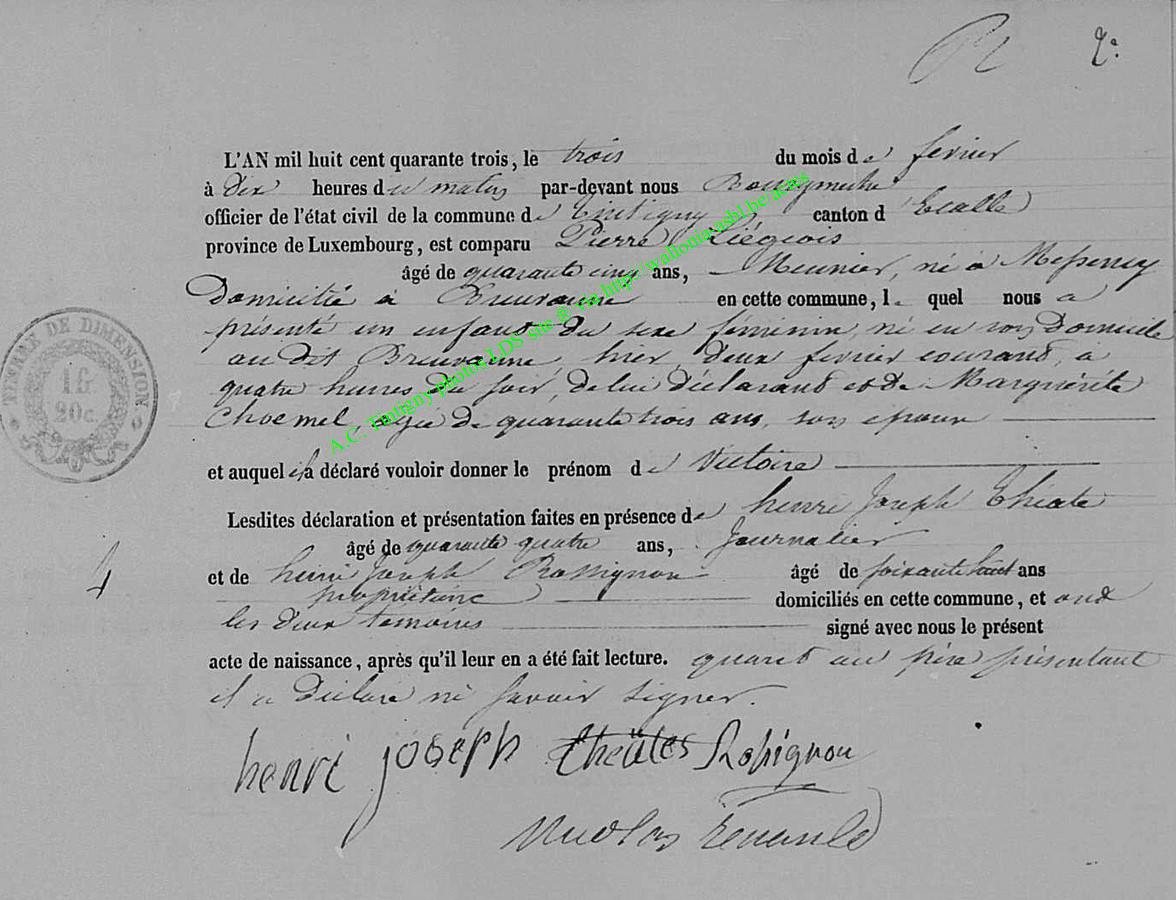 2.
L'AN mil huit cent quarante trois, le trois du mois de fevrier
à dix heures du matin par-devant nous Bourgmestre
officier de l'état civil de la commune de Tintigny canton d' Etalle
province de Luxembourg, est comparu Pierre Liégeois
âgé de quarante cinq ans, Meunier, né à Messancy
Domicilié à Breuvanne en cette commune, le quel nous a
présenté un enfant du sexe féminin, né en son Domicile
au dit Breuvanne, hier deux fevrier courant, à
quatre heures du soir, de lui déclarant et de Marguérite
Choemel, agée de quarante trois ans, son épouse
et auquel il a déclaré vouloir donner le prénom de Victoire
Lesdites déclaration et présentation faites en présence de henri Joseph
âgé de quarante quatre ans, Journalier
et de henri Joseph Rossignon âgé de soixante huit ans
propriétaire domiciliés en cette commune, et ont
les deux temoins signé avec nous le présent
acte de naissance, après qu'il leur en a été fait lecture. quant au père présentant
il a déclaré ne savoir signer.
henri joseph Rossignon
Nicolas
TIMBRE DE DIMENSION
20c.
4
A.C. Tintigny photos LDS site ® via http://wallonia-asbl.be/actes